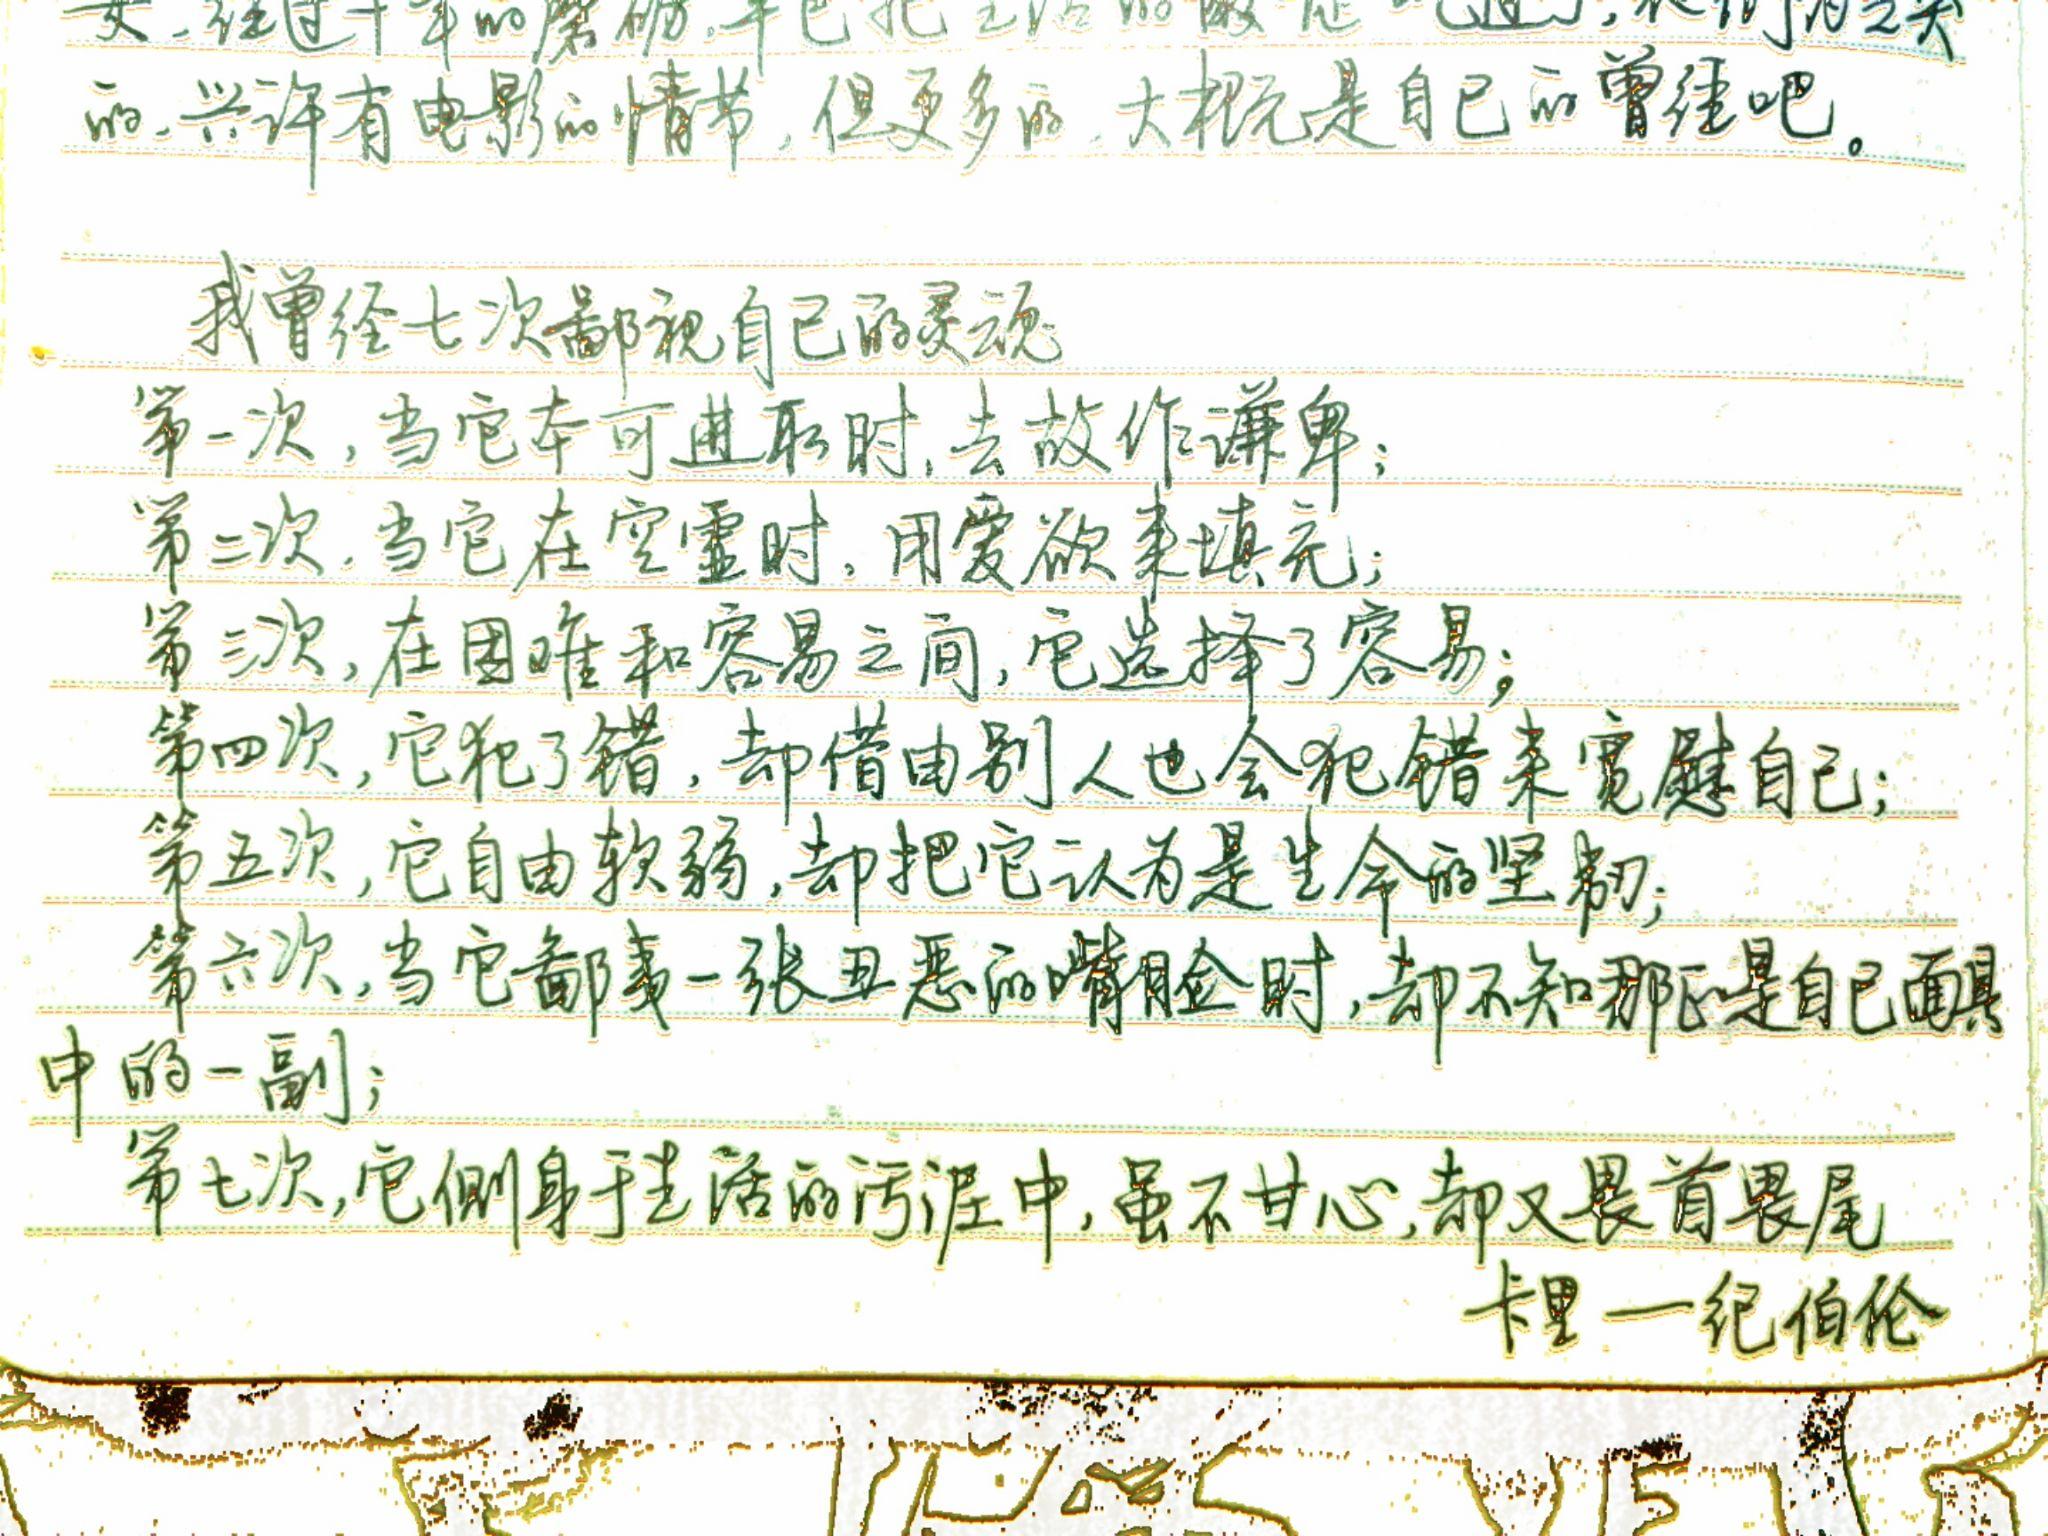 经过十年的磨砺,早已把生活的
的,兴许有电影的情节,但更多的,大概是自己的曾经吧。
我曾经七次鄙视自己的灵魂
第一次,当它本可进取时,去故作谦卑;
第二次,当它在空虚时,用爱欲来填充;
第三次,在困难和容易之间,它选择了容易;
第四次,它犯了错,却借由别人也会犯错来宽慰自己;
第五次,它自由软弱,却把它认为是生命的坚韧;
第六次,当它鄙夷一张丑恶的嘴脸时,却不知那正是自己面具
中的一副;
第七次,它侧身于生活的污泥中,虽不甘心,却又畏首畏尾
卡里一纪伯伦